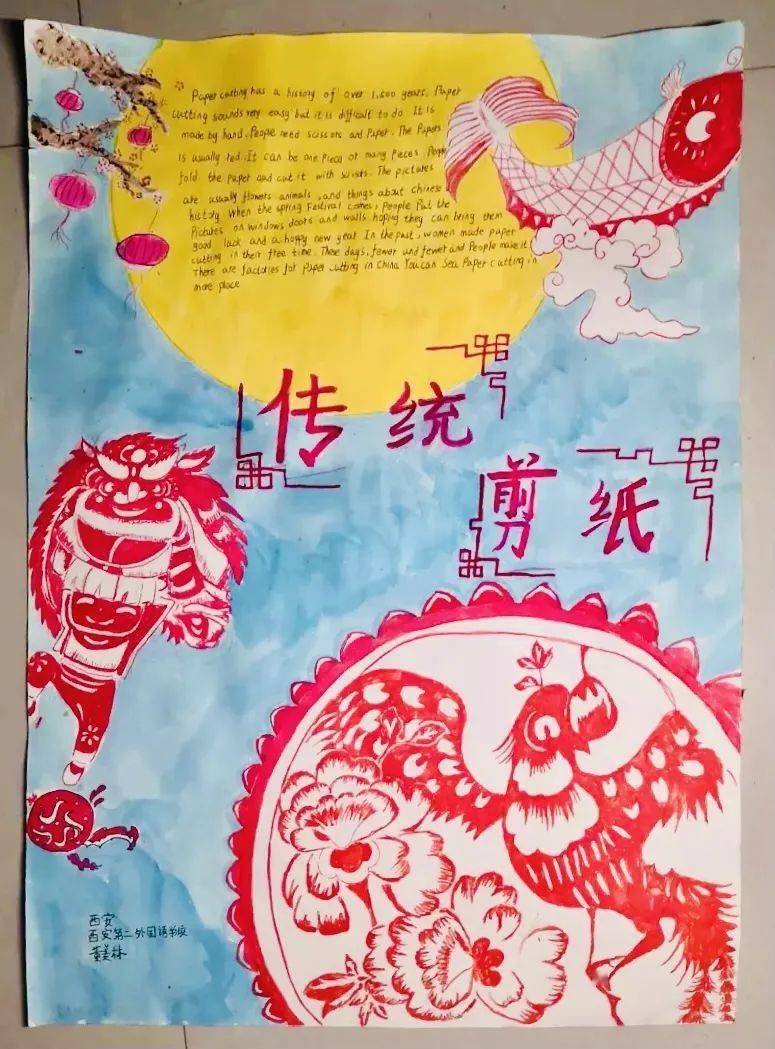 Paper cutting has a history of over 1,500 years. Paper
cutting sounds very easy but it is difficult to do. It is
made by hand. People need scissors and Paper. The Papers
is usually red. It can be one piece or many pieces. People
fold the paper and cut it with
The pictures
are usually flowers animals, and things about chinese
history. When the spring Festival comes, People Put the
Pictures on windows, doors and walls hoping they can bring them
good luck and a happy new year. In the past, women made paper
cutting in their free time. These days, fewer and fewer and People make it
There are factories for Paper cutting in China. You can See Paper cutting in
more place
传统
剪纸
西安
西安第二外国语学校
董美林